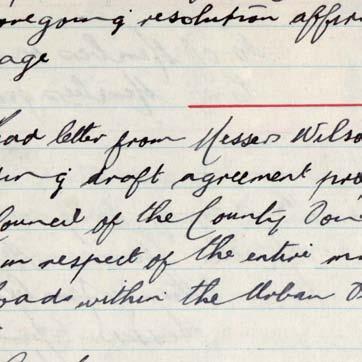 foregoing resolution affir
age
ead letter from Messrs Wilso
ing draft agreement pro
Council of the County
in respect of the entire m
Roads within the Urban D